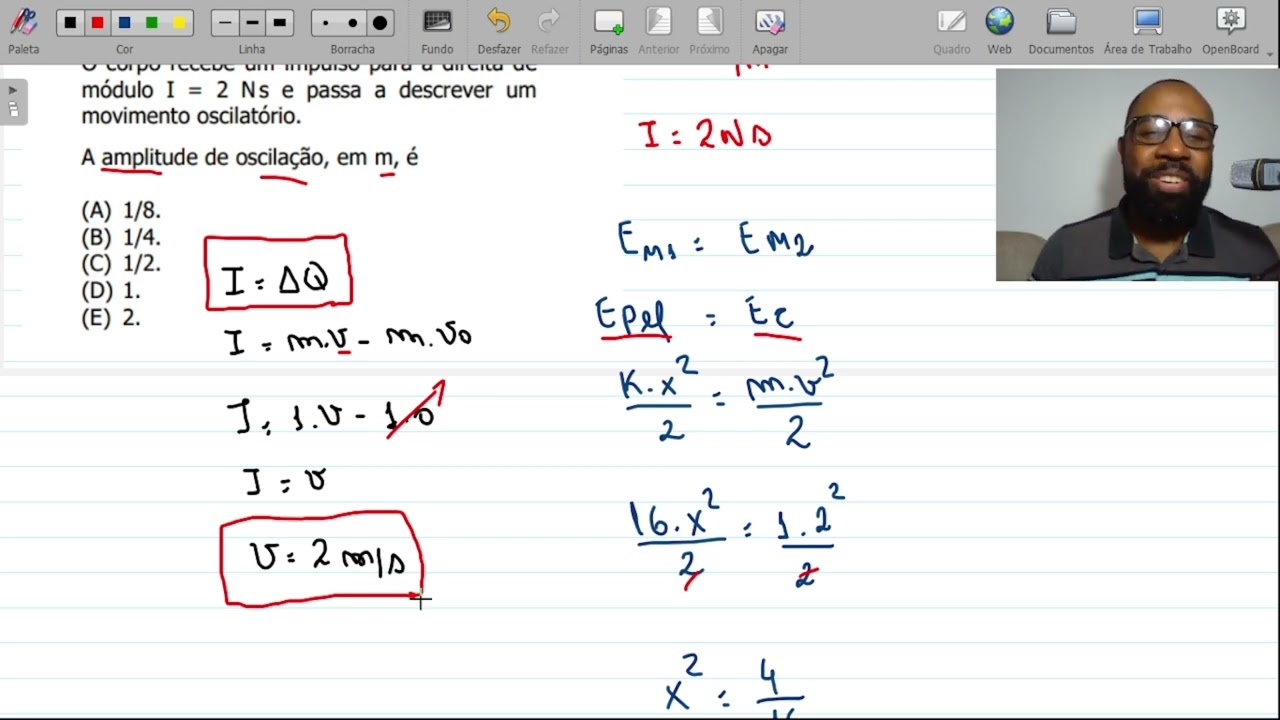 Paleta Cor Linha Borracha Fundo Desfazer Refazer Páginas Anterior Próximo Apagar Quadro Web Documentos Área de Trabalho OpenBoard
O corpo recebe um impulso para a direita de
módulo I = 2 Ns e passa a descrever um
movimento oscilatório.
A amplitude de oscilação, em m, é
(A) 1/8.
(B) 1/4.
(C) 1/2.
(D) 1.
(E) 2.
I = ΔQ
I = m.v - m.v0
I = 1.v - 1.0
I = v
v = 2 m/s
I = 2Ns
EM1 = EM2
Epel = Ec
K.x²/2 = m.v²/2
16.x²/2 = 1.2²/2
x² = 4